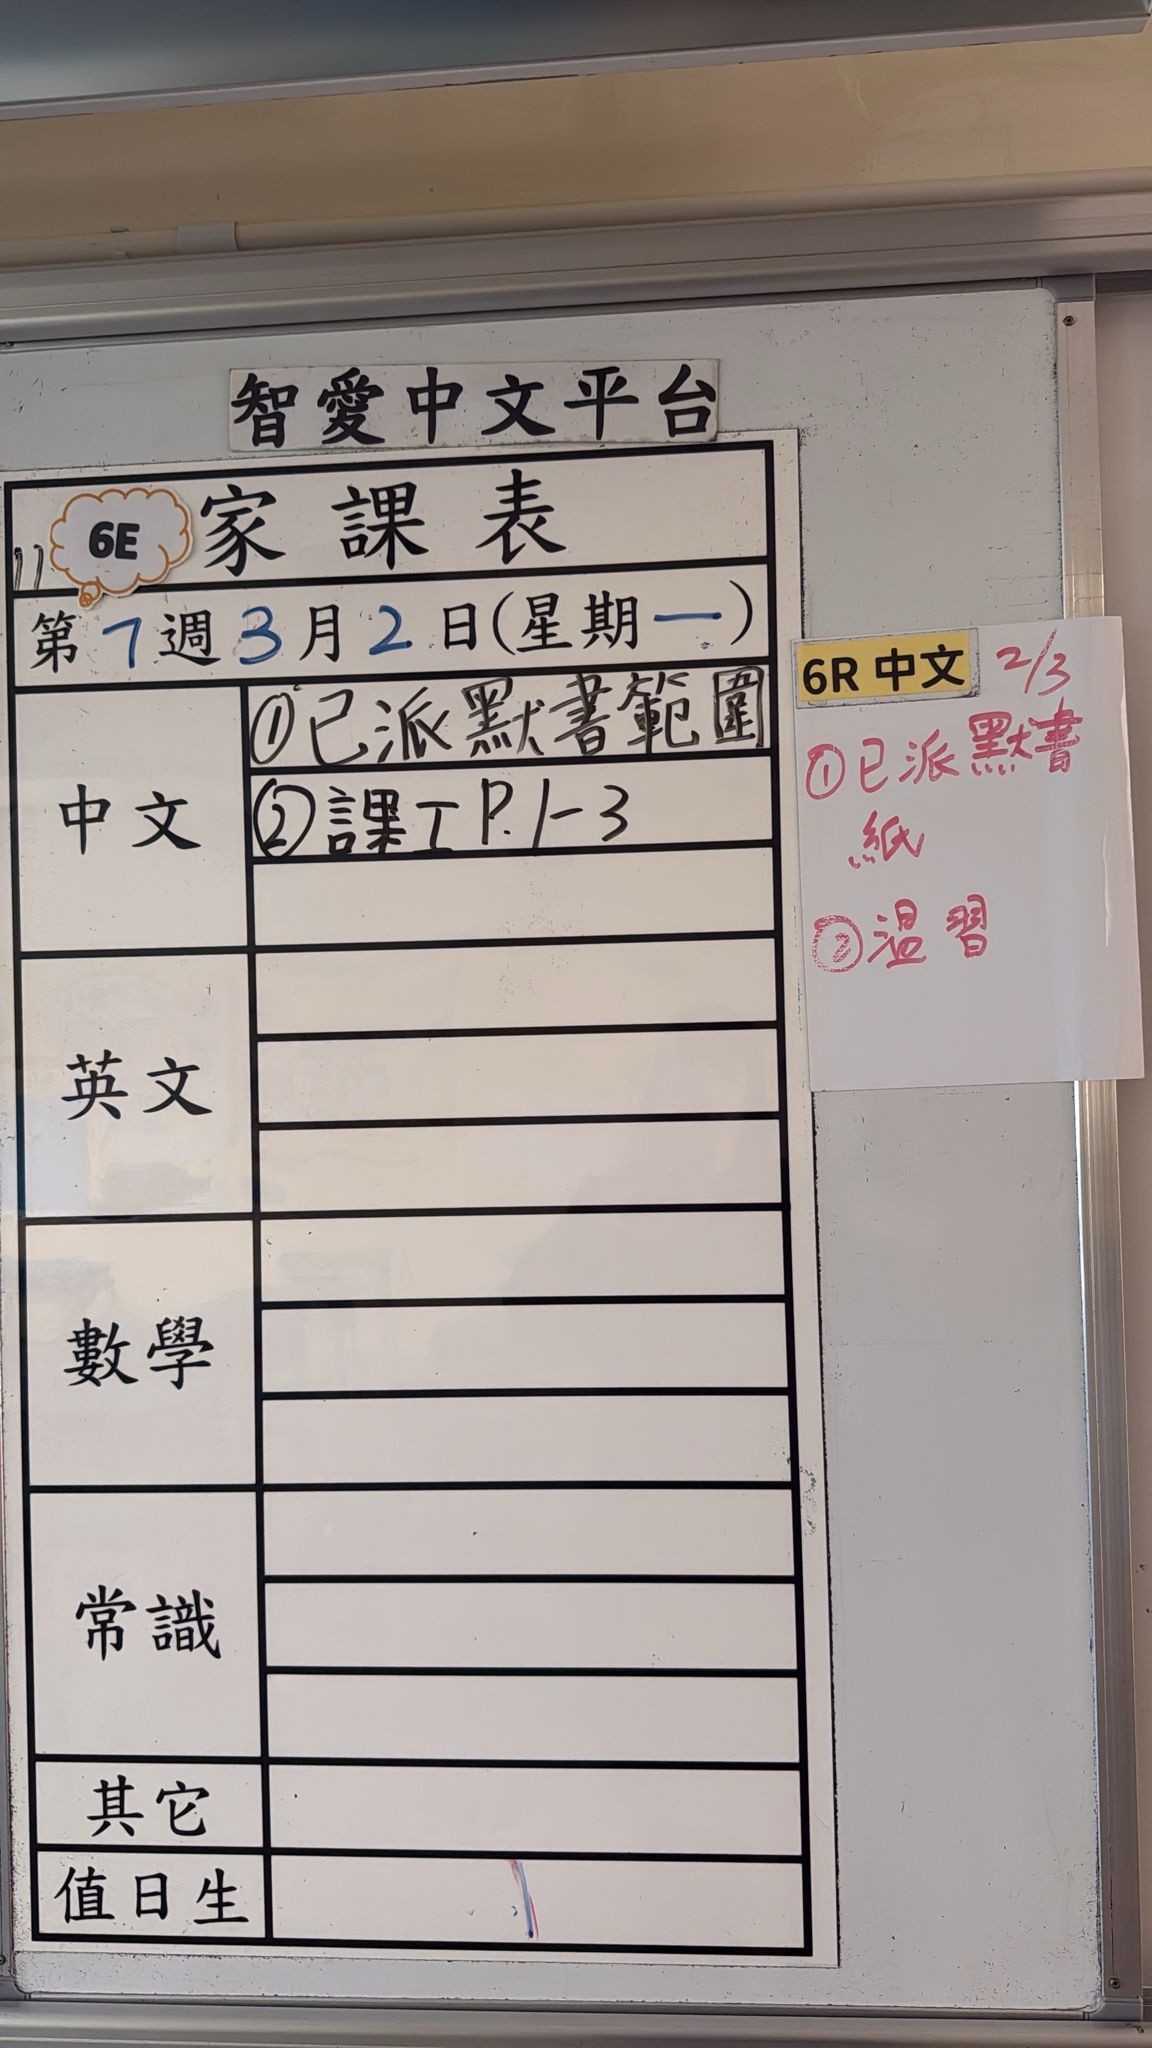 智愛中文平台
6E 家課表
第7週3月2日(星期一)
中文
①已派默書範圍
②課工P.1-3
英文
數學
常識
其它
值日生
6R 中文 2/3
①已派默書
紙
②温習